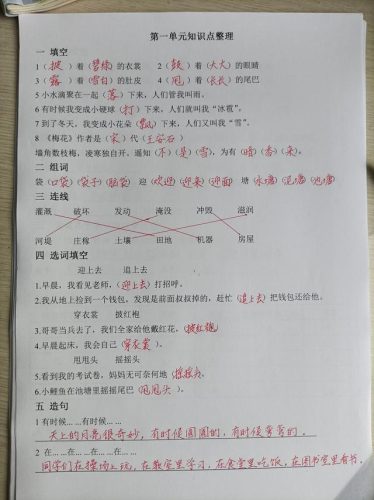 第一单元知识点整理
一 填空
1（披）着（碧绿）的衣裳 2（鼓）着（大大）的眼睛
3（露）着（雪白）的肚皮 4（甩）着（长长）的尾巴
5 小水滴聚在一起（落）下来，人们管我叫雨。
6 有时候我变成小硬球（打）下来，人们就叫我“冰雹”。
7 到了冬天，我变成小花朵（飘）下来，人们又叫我“雪”。
8 《梅花》作者是（宋）代（王安石）
墙角数枝梅，凌寒独自开。遥知（不）（是）（雪），为有（暗）（香）（来）。
二 组词
袋（口袋）（袋子）（脑袋） 迎（欢迎）（迎来）（迎面） 塘（水塘）（泥塘）（池塘）
三 连线
灌溉 破坏 发动 淹没 冲毁 滋润
河堤 庄稼 土壤 田地 机器 房屋
四 选词填空
迎上去 追上去
1.早晨，我看见老师，（迎上去）打招呼。
2.我从地上捡到一个钱包，发现是前面叔叔掉的，赶忙（追上去）把钱包还给他。
穿衣裳 披红袍
3.哥哥当兵去了，我们全家给他戴红花，（披红袍）
4.早晨起床，我会自己（穿衣裳）。
甩甩头 摇摇头
5.看到我的考试卷，妈妈无可奈何地（摇摇头）。
6.小鲤鱼在池塘里摇摇尾巴（甩甩头）。
五 造句
1 有时候……有时候……
天上的月亮很奇妙，有时候圆圆的，有时候弯弯的。
2 在……在……在……在……
同学们在操场上玩，在教室里学习，在食堂里吃饭，在图书室里看书。